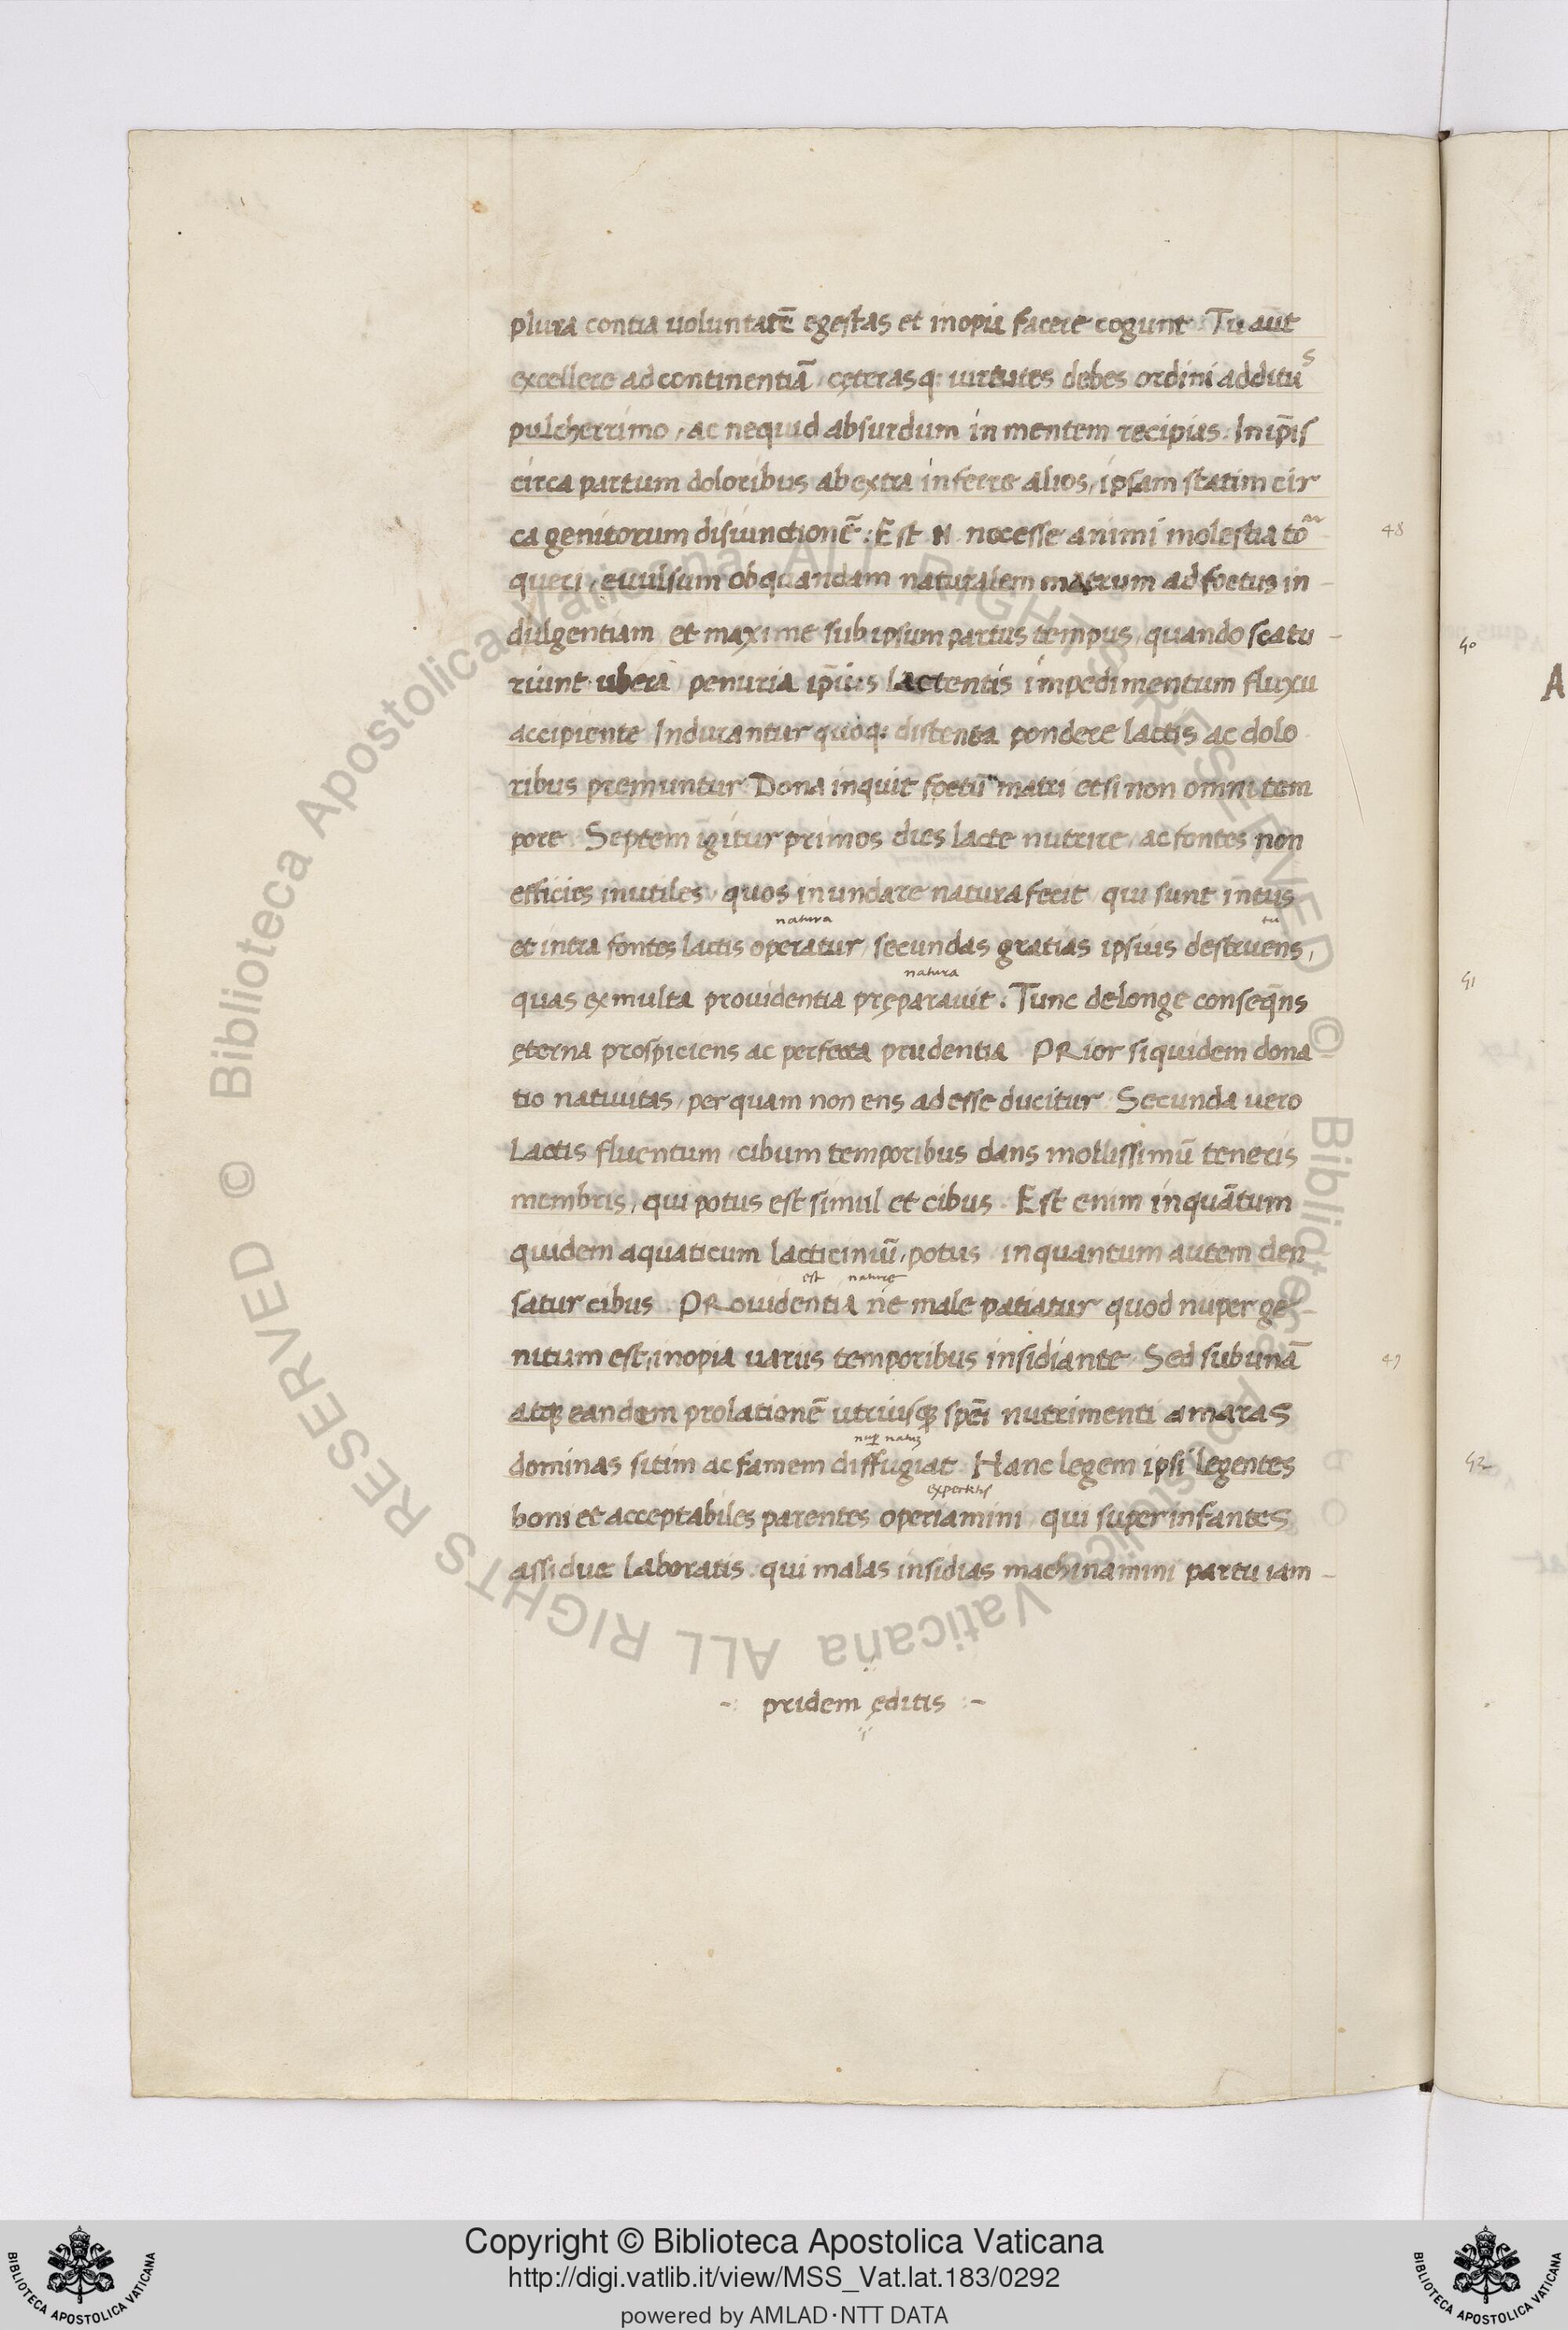 plura contra uoluntatē egestas et inopia facere cogunt. Tu aut
excellere ad continentiā, cęterasq; uirtutes debes ordini additus
pulcherrimo, ac nequid absurdum in mentem recipias. In ip̄is
circa partum doloribus ab extra inferre alios, ipsam statim cir
ca genitorum disiunctionē: Est N necesse animi molestia tor
queri, euulsum ob quandam naturalem matrum ad foetus in-
dulgentiam et maxime sub ipsum partus tempus, quando scatu-
riunt ubera penuria ip̄ius lactentis impedimentum fluxu
accipiente Indurantur quoq; distenta pondere lactis ac dolo
ribus premuntur Dona inquit foetū matri et si non omni tem
pore. Septem igitur primos dies lacte nutrire, ac fontes non
efficies inutiles, quos inundare natura fecit qui sunt intus
natura tu
et intra fontes lactis operatur, secundas gratias ipsius destruens,
natura
quas ex multa prouidentia pręparauit. Tunc de longe conseq̄ns
ęterna prospiciens ac perfecta prudentia PRior siquidem dona
tio natiuitas, per quam non ens ad esse ducitur. Secunda uero
Lactis fluentum, cibum temporibus dans mollissimū teneris
membris, qui potus est simul et cibus. Est enim inquātum
quidem aquaticum lacticiniū, potus inquantum autem den
est nature
satur cibus PRouidentia ne male patiatur quod nuper ge-
nitum est, inopia uariis temporibus insidiante. Sed sub unā
atq; eandem prolationē utriusq; spēi nutrimenti amaras
nup natuʒ
dominas sitim ac famem diffugiat Hanc legem ipsi legentes
expectetis
boni et acceptabiles parentes operiamini qui super infantes
assidue laboratis. qui malas insidias machinamini partu iam-
-: pridem ęditis :-
48
49
50
51
52
A
Biblioteca Apostolica Vaticana ALL RIGHTS RESERVED © Biblioteca Apostolica Vaticana ALL RIGHTS RESERVED ©
Copyright © Biblioteca Apostolica Vaticana
http://digi.vatlib.it/view/MSS_Vat.lat.183/0292
powered by AMLAD·NTT DATA
BIBLIOTECA APOSTOLICA VATICANA
BIBLIOTECA APOSTOLICA VATICANA